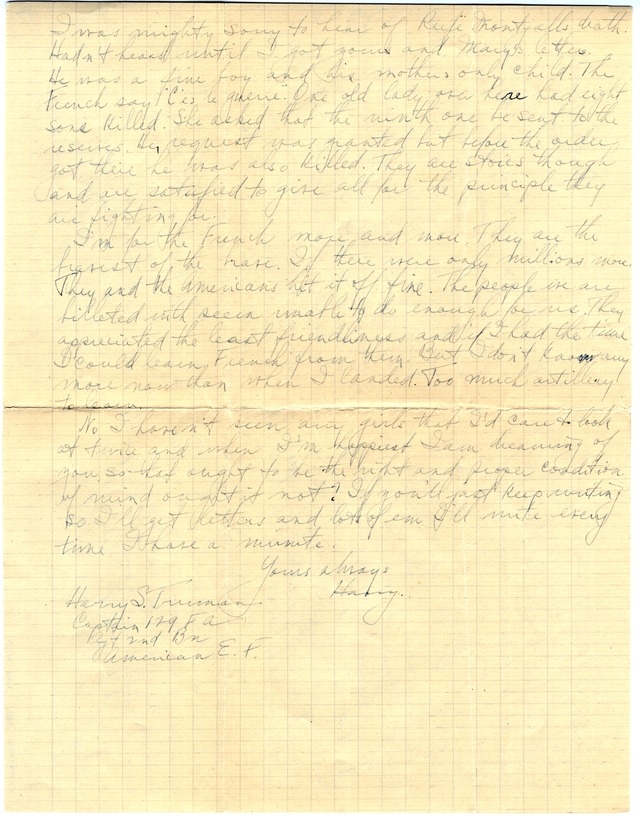 I was mighty sorry to hear of Rufe Montgalls death.
Hadn't heard until I got yours and Mary's letter.
He was a fine boy and his mothers only child. The
French say "C'es le guerre". One old lady over here had eight
sons killed. She asked that the ninth one be sent to the
reserves. Her request was granted but before the order
got there he was also killed. They are stoics though
and are satisfied to give all for the principle they
are fighting for.
I'm for the French more and more. They are the
bravest of the brave. If there were only millions more.
They and the Americans hit it off fine. The people we are
billeted with seem unable to do enough for us. They
appreciated the least friendliness and if I had the time
I could learn French from them. But I don't know any
more now than when I landed. Too much artillery
to learn.
No I haven't seen any girls that I'd care to look
at twice and when I'm happiest I am dreaming of
you so that ought to be the right and proper condition
of mind ought it not? If you'll just keep writing
so I'll get letters and lots of em I'll write every
time I have a minute.
Yours always
Harry.
Harry S. Truman
Captain 129 F A
2nd Bn
American E. F.